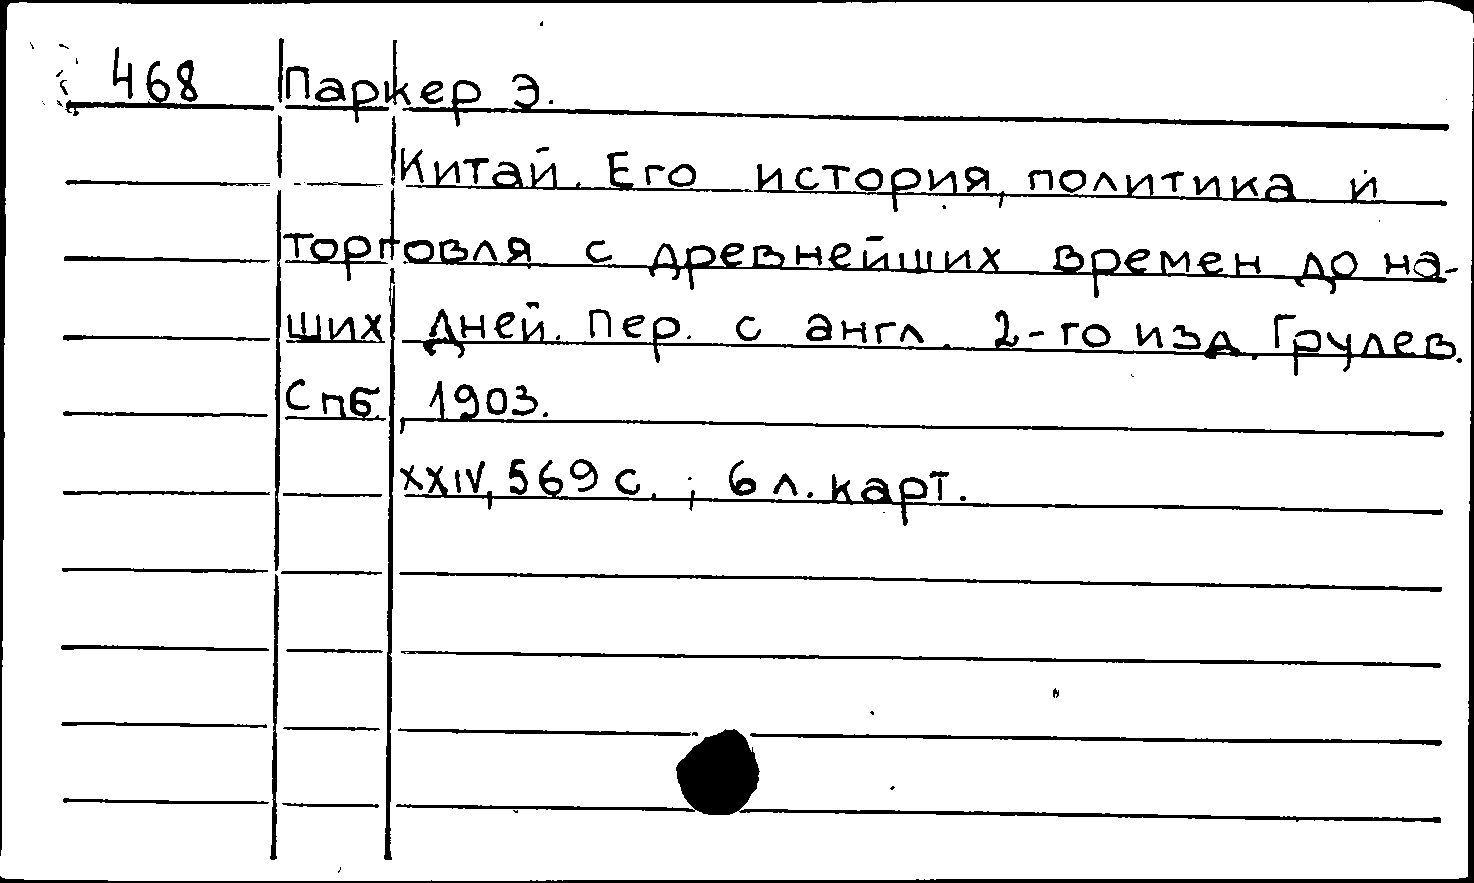 468 Паркер Э.
Китай. Его история, политика и
торговля с древнейших времен до на-
ших дней. Пер. с англ. 2-го изд. Грулев.
Спб, 1903.
XXIV, 569 с.; 6 л. карт.